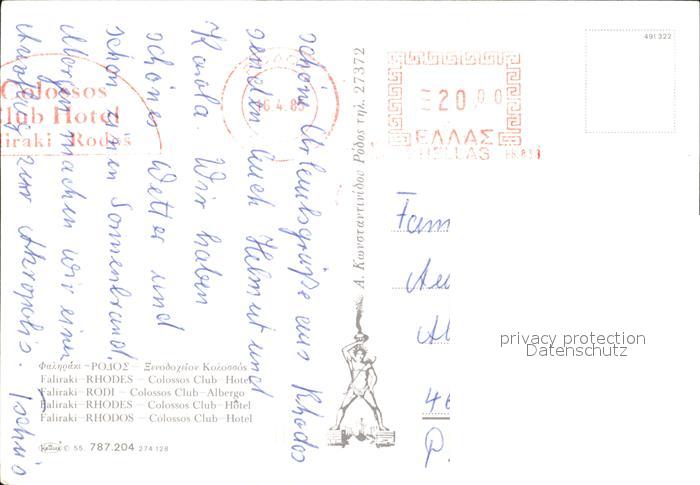 schöne Urlaubsgrüße aus Rhodos
senden Euch Helmut und
Karola. Wir haben
schönes Wetter und
schon einen Sonnenbrand.
Morgen machen wir einen
Ausflug zur Akropolis. Tschüs
Colossos
Club Hotel
Faliraki - Rodos
6.4.83
20,00
ΕΛΛΑΣ
HELLAS
491 322
Α. Κωνσταντινίδου Ρόδος τηλ. 27372
Fam
Au
Al
46
P.
privacy protection
Datenschutz
Φαληράκι - ΡΟΔΟΣ - Ξενοδοχεῖον Κολοσσός
Faliraki - RHODES - Colossos Club - Hotel
Faliraki - RODI - Colossos Club - Albergo
Faliraki - RHODES - Colossos Club - Hôtel
Faliraki - RHODOS - Colossos Club - Hotel
© 55. 787.204 274 128